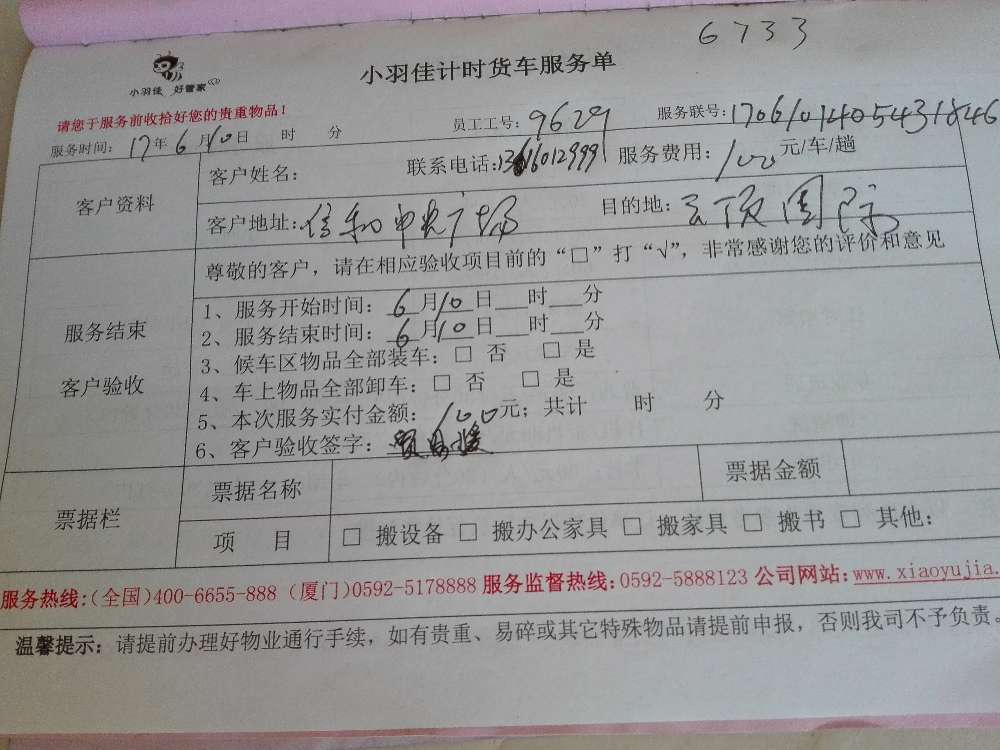 6733
小羽佳 好管家
小羽佳计时货车服务单
请您于服务前收拾好您的贵重物品！
服务时间：17年6月10日 时 分 员工工号：9629 服务联号：1706101405431846
客户资料
客户姓名： 联系电话：13616012999 服务费用：100元/车/趟
客户地址：信和中央广场 目的地：云顶国际
服务结束
客户验收
尊敬的客户，请在相应验收项目前的“□”打“√”，非常感谢您的评价和意见
1、服务开始时间：6月10日___时___分
2、服务结束时间：6月10日___时___分
3、候车区物品全部装车：□ 否 □ 是
4、车上物品全部卸车：□ 否 □ 是
5、本次服务实付金额：100元；共计 时 分
6、客户验收签字：
票据栏
票据名称 票据金额
项 目 □ 搬设备 □ 搬办公家具 □ 搬家具 □ 搬书 □ 其他：
服务热线：（全国）400-6655-888（厦门）0592-5178888 服务监督热线：0592-5888123 公司网站：www.xiaoyujia.
温馨提示：请提前办理好物业通行手续，如有贵重、易碎或其它特殊物品请提前申报，否则我司不予负责。